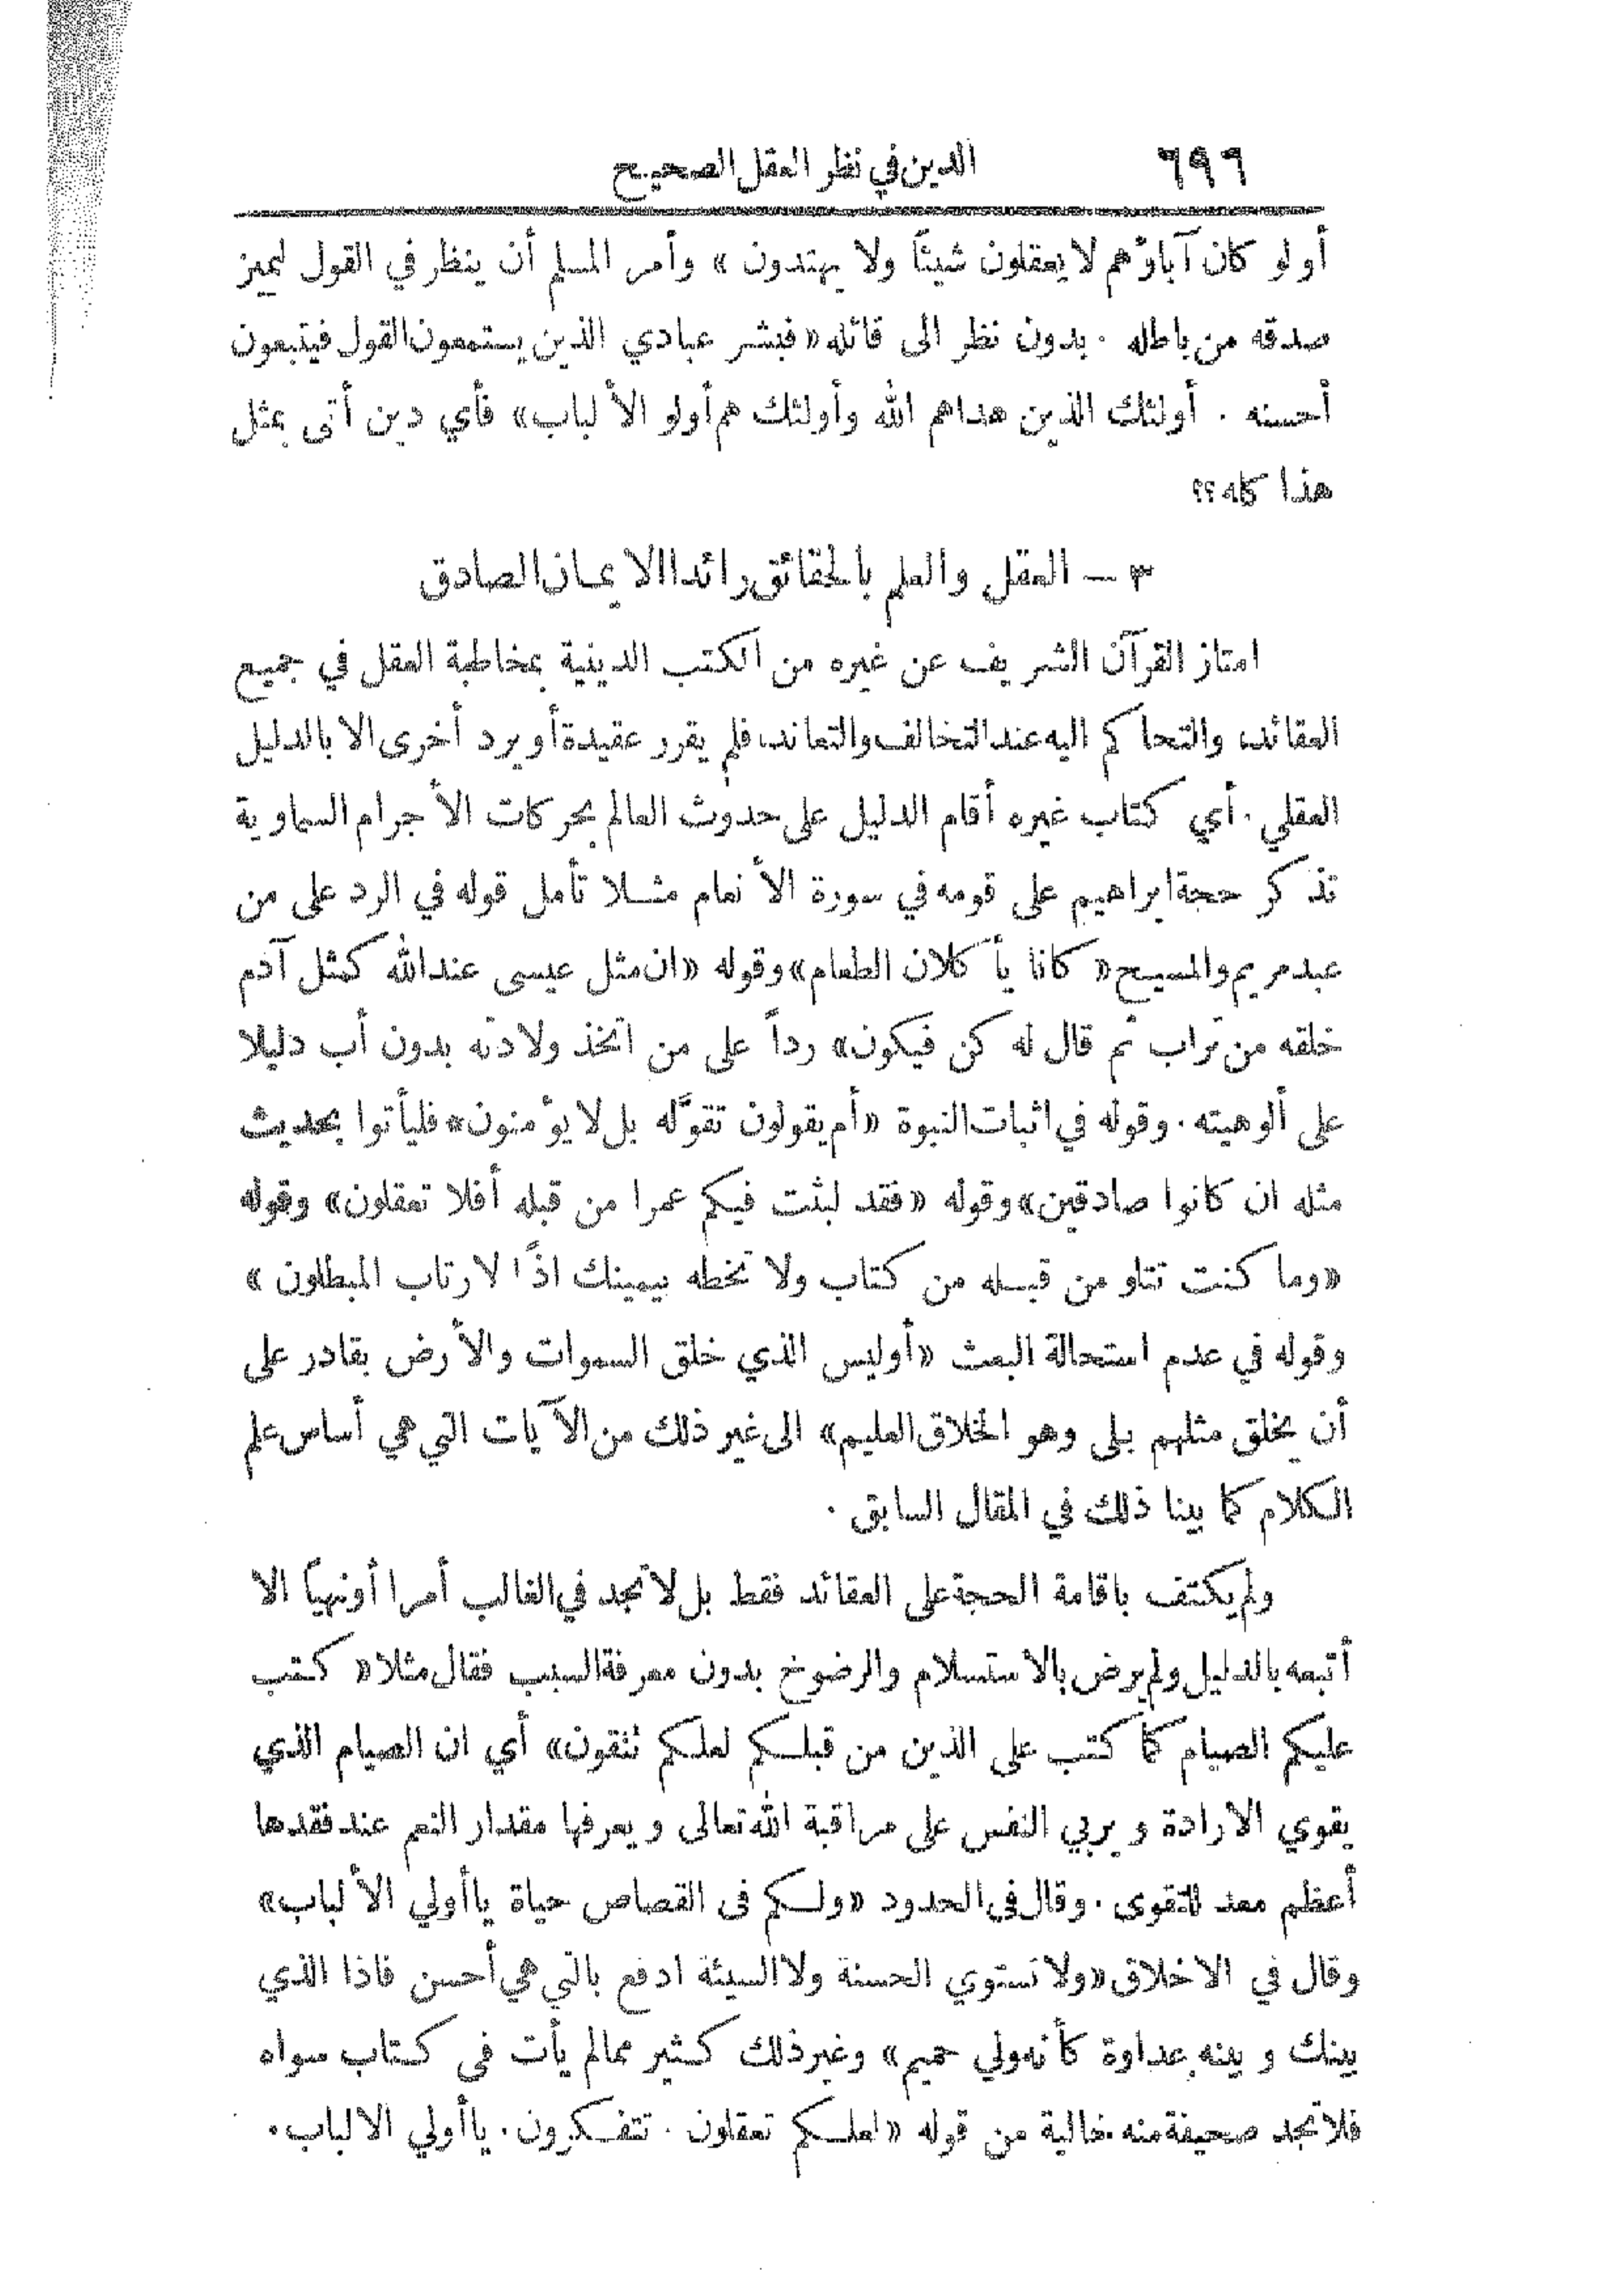 ٦٩٦
الدين في نظر العقل الصحيح
أولو كان آباؤهم لا يعقلون شيئاً ولا يهتدون » وأمر المسلم أن ينظر في القول ليميز
صدقه من باطله . بدون نظر الى قائله « فبشر عبادي الذين يستمعون القول فيتبعون
أحسنه . أولئك الذين هداهم الله وأولئك هم أولو الألباب» فأي دين أتى بمثل
هذا كله؟؟
٣ — العقل والعلم بالحقائق رائدا الايمان الصادق
امتاز القرآن الشريف عن غيره من الكتب الدينية بمخاطبة العقل في جميع
العقائد، والتحاكم اليه عند التخالف والتعاند، فلم يقرر عقيدة أو يرد أخرى الا بالدليل
العقلي . أي كتاب غيره أقام الدليل على حدوث العالم بحركات الأجرام السماوية
تذكر حجة ابراهيم على قومه في سورة الأنعام مثلا تأمل قوله في الرد على من
عبد مريم والمسيح « كانا يأكلان الطعام» وقوله «ان مثل عيسى عند الله كمثل آدم
خلقه من تراب ثم قال له كن فيكون» رداً على من اتخذ ولادته بدون أب دليلا
على ألوهيته . وقوله في اثبات النبوة « أم يقولون تقوَّله بل لا يؤمنون» فليأتوا بحديث
مثله ان كانوا صادقين» وقوله «فقد لبثت فيكم عمرا من قبله أفلا تعقلون» وقوله
«وما كنت تتلو من قبله من كتاب ولا تخطه بيمينك اذًا لارتاب المبطلون »
وقوله في عدم استحالة البعث « أوليس الذي خلق السموات والأرض بقادر على
أن يخلق مثلهم بلى وهو الخلاق العليم» الى غير ذلك من الآيات التي هي أساس علم
الكلام كما بينا ذلك في المقال السابق .
ولم يكتف باقامة الحجة على العقائد فقط بل لا تجد في الغالب أمرا أو نهياً الا
أتبعه بالدليل ولم يرض بالاستسلام والرضوخ بدون معرفة السبب فقال مثلا « كتب
عليكم الصيام كما كتب على الذين من قبلكم لعلكم تتقون» أي ان الصيام الذي
يقوي الارادة ويربي النفس على مراقبة الله تعالى ويعرفها مقدار النعم عند فقدها
أعظم معد للتقوى . وقال في الحدود «ولكم في القصاص حياة يا أولي الألباب»
وقال في الاخلاق «ولا تستوي الحسنة ولا السيئة ادفع بالتي هي أحسن فاذا الذي
بينك وبينه عداوة كأنه ولي حميم» وغير ذلك كثير مما لم يأت في كتاب سواه
فلا تجد صحيفة منه خالية من قوله « لعلكم تعقلون . تتفكرون . يا أولي الالباب .